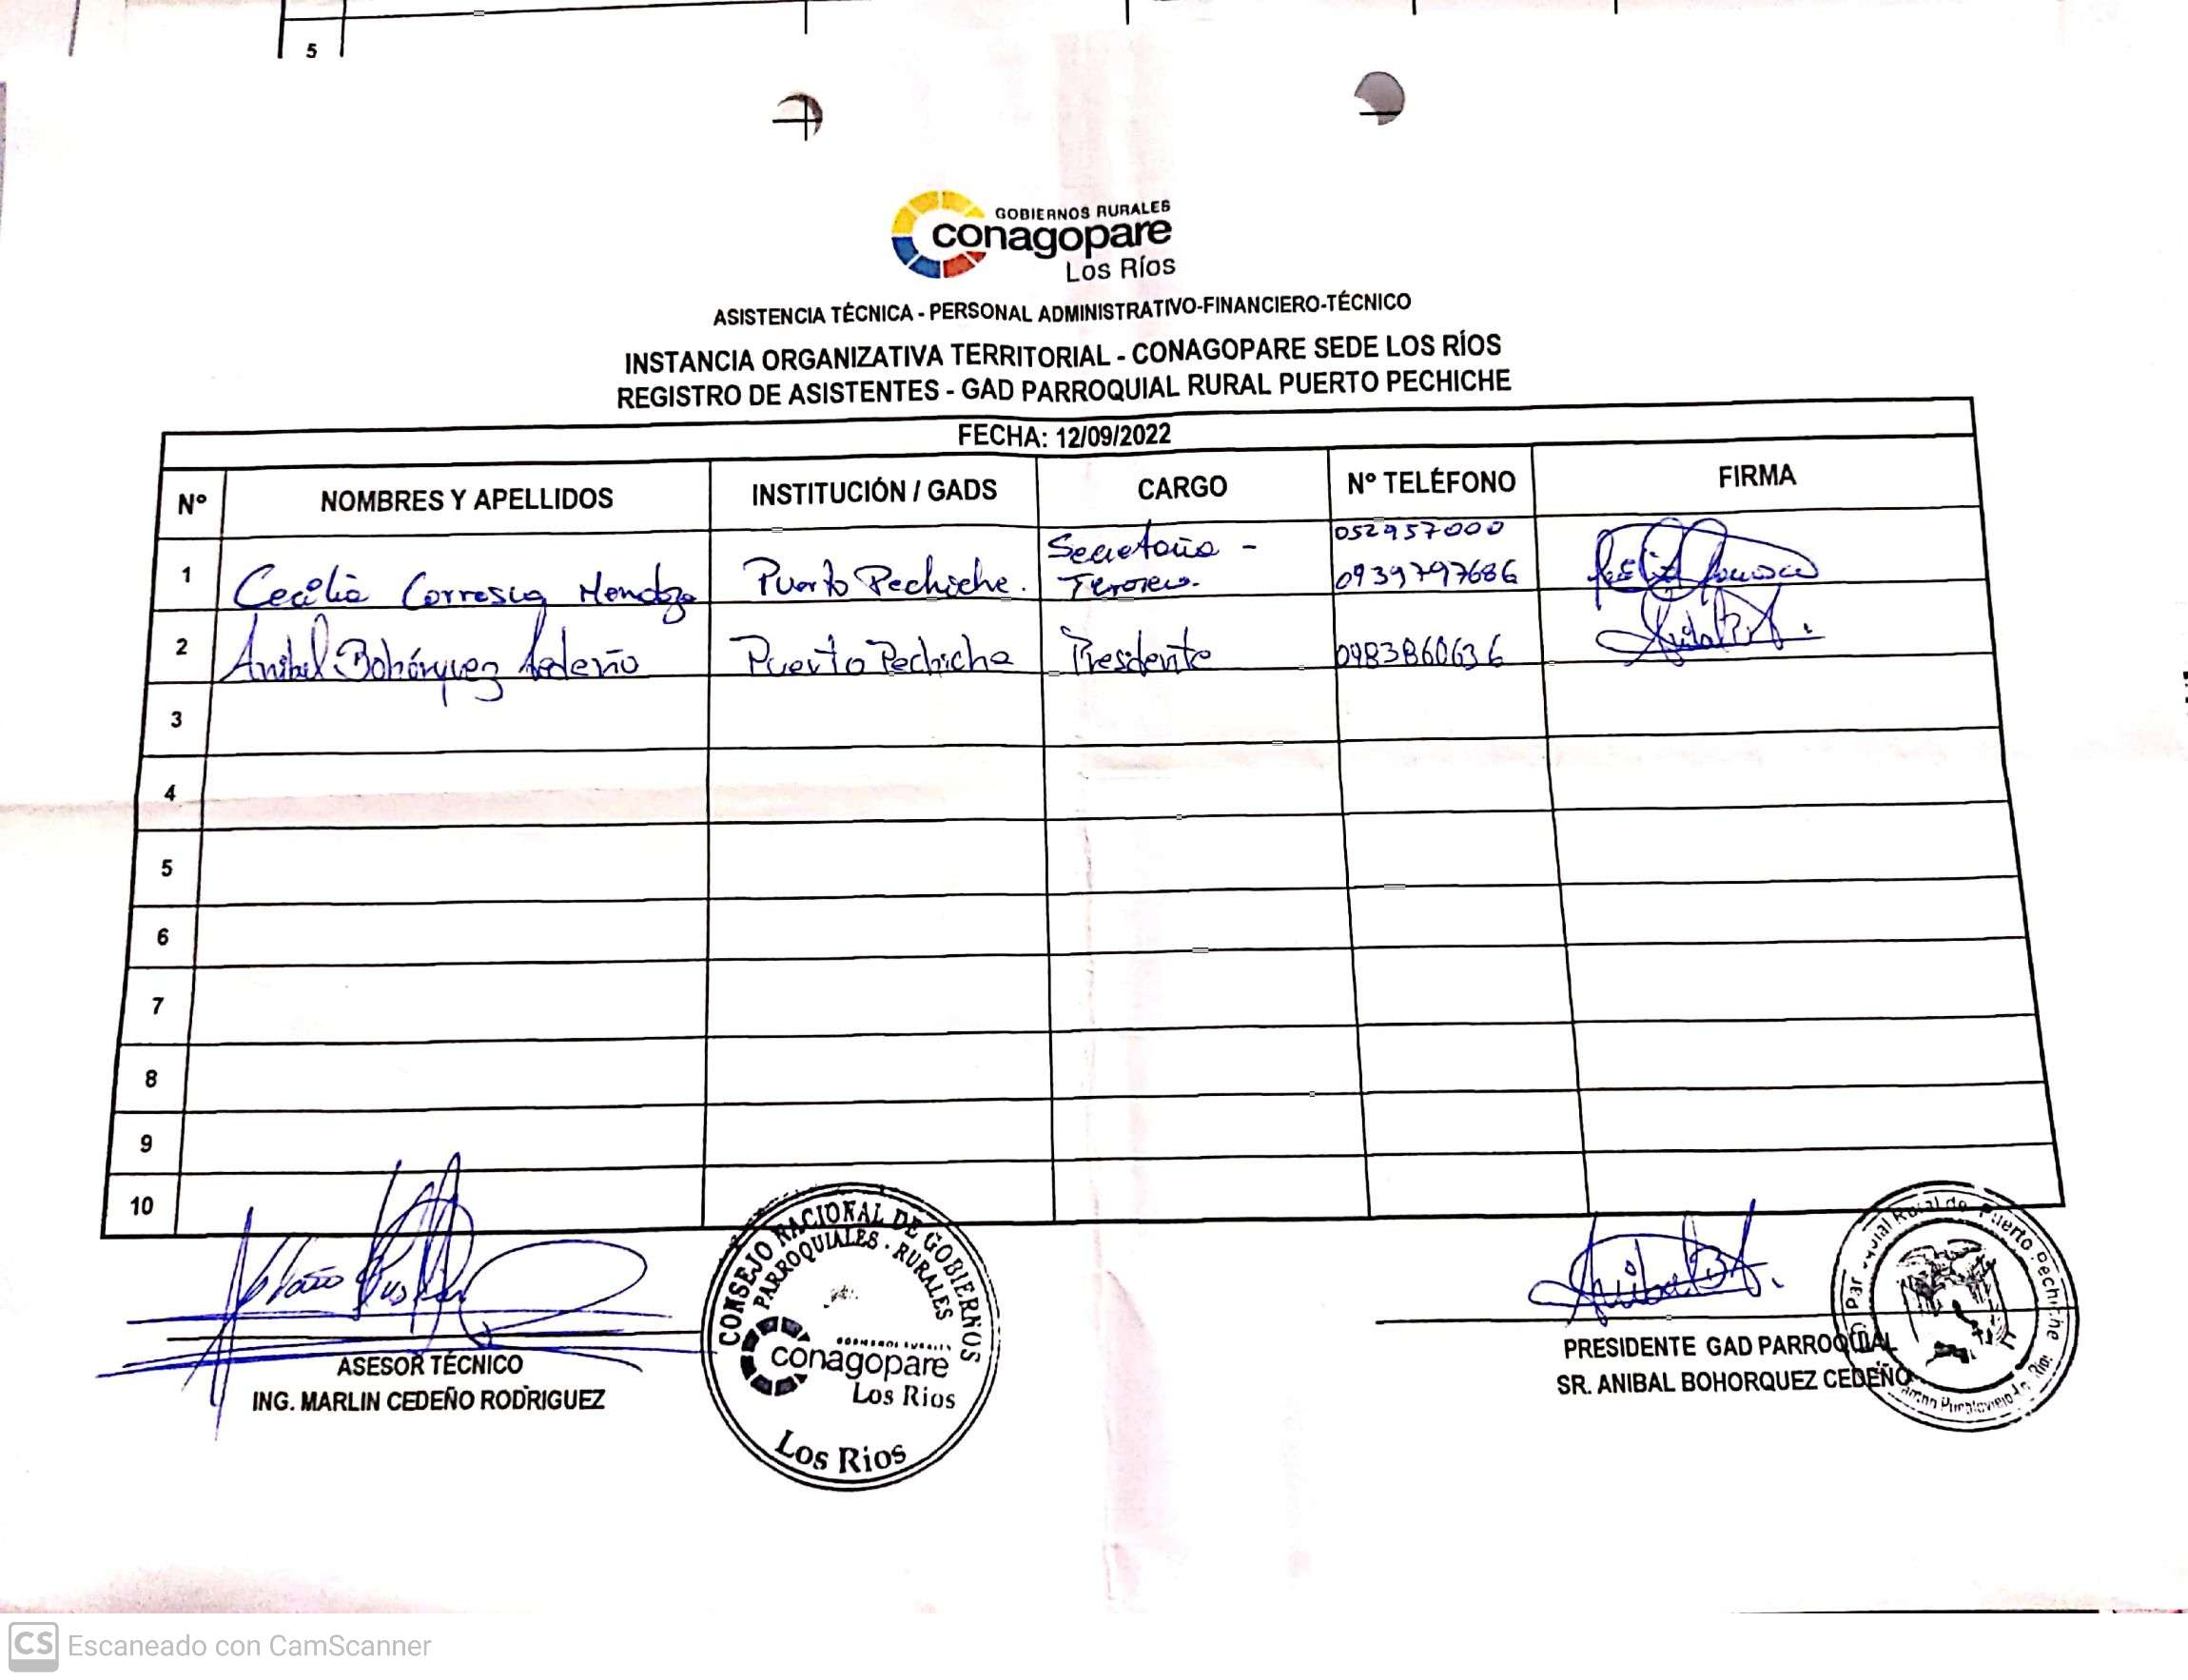 5
GOBIERNOS RURALES
conagopare
Los Ríos
ASISTENCIA TÉCNICA - PERSONAL ADMINISTRATIVO-FINANCIERO-TÉCNICO
INSTANCIA ORGANIZATIVA TERRITORIAL - CONAGOPARE SEDE LOS RÍOS
REGISTRO DE ASISTENTES - GAD PARROQUIAL RURAL PUERTO PECHICHE
FECHA: 12/09/2022
Nº NOMBRES Y APELLIDOS INSTITUCIÓN / GADS CARGO Nº TELÉFONO FIRMA
1 Cecilia Mendoza Puerto Pechiche. Secretaria - 052957000 0939797686
2 Anibal Bohórquez Cedeño Puerto Pechiche Presidente 0983860636
3
4
5
6
7
8
9
10
CONSEJO NACIONAL DE GOBIERNOS
PARROQUIALES - RURALES
conagopare
Los Rios
Los Rios
ASESOR TÉCNICO
ING. MARLIN CEDEÑO RODRIGUEZ
Rural de Puerto Pechiche
PRESIDENTE GAD PARROQUIAL
SR. ANIBAL BOHORQUEZ CEDEÑO
CS Escaneado con CamScanner